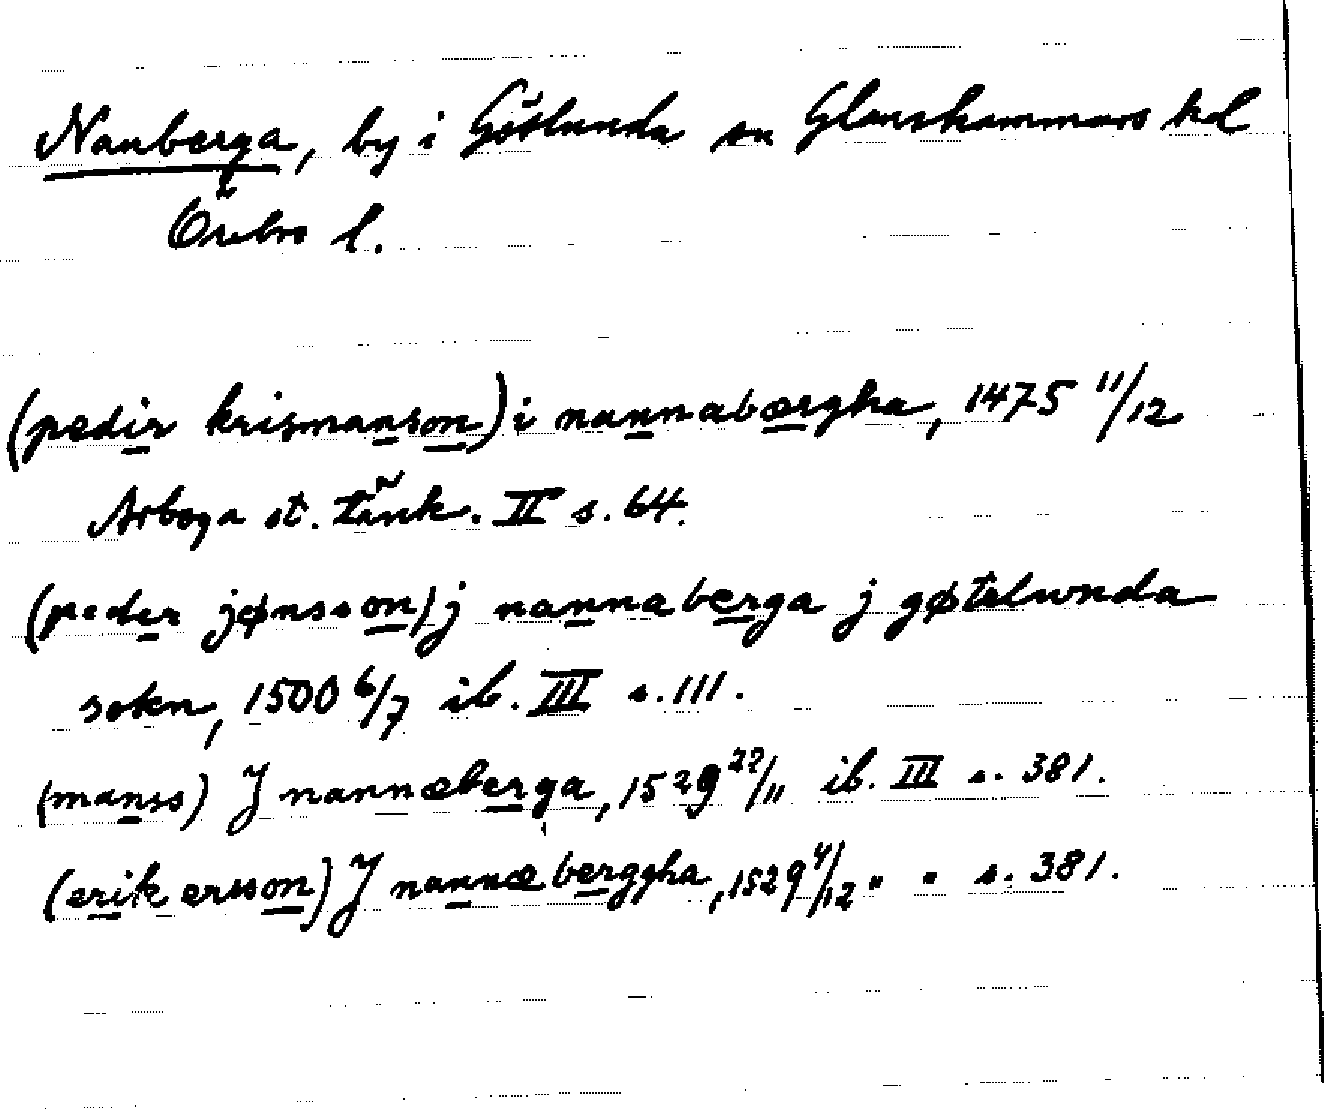 Nanberga, by i Götlunda sn Glanshammars hd
Örebro l.
(pedir krismanson) i nannabærgha, 1475 11/12
Arboga st. tänk. II s. 64.
(peder jønsson) j nannaberga j gøtelwnda
sokn, 1500 6/7 ib. III s. 111.
(manss) J nannæberga, 1529 22/11 ib. III s. 381.
(erik ersson) J nannæberggha, 1529 4/12 " " s. 381.